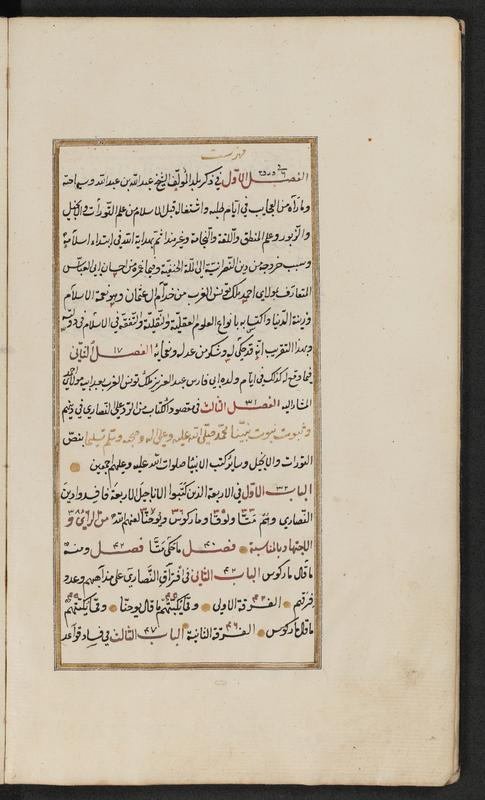 فهرست
الفصل الاول في ذكر بلد المؤلف الشيخ عبد الله بن عبد الله وسياحته
وما رآه من العجايب في ايام طلبه واشتغاله قبل الاسلام من علم التورات والانجيل
والزبور وعلم المنطق واللغة والنجامة وغيرها ثم بهداية الله في ابتداء اسلامه
وسبب خروجه من دين النصرانية الى الملة الحنيفية وفيما جرى من احسان ابي العباس
المتعارف بمولاي احمد ملك تونس الغرب من خدام آل عثمان وهو نعمة الاسلام
وزينة الدنيا واكتسابه بانواع العلوم العقلية والنقلية والتفقه في الاسلام في دولته
وبهذا التقريب انه قد حكى له وشكر من عدله ونعمايه الفصل الثاني ١٧
فيما وقع له كذلك في ايام ولده ابي فارس عبد العزيز ملك تونس الغرب بعد ابيه مولاي احمد
المشار اليه الفصل الثالث ٣١ في مقصود الكتاب من الرد على النصارى في دينهم
وثبوت نبوت نبينا محمد صلى الله عليه وعلى اله وصحبه وسلم تسليما بنص
التورات والانجيل وساير كتب الانبيا صلوات الله عليه وعليهم اجمعين
الباب الاول ٣٢ في الاربعة الذين كتبوا الاناجيل الاربعة فافسدوا دين
النصارى وهم متا ٣٣ ولوقا ٣٥ وماركوس ٣٦ ويوحنا ٣٧ لعنهم الله من الراى ٣٨ و
الاجتهاد بالمناسبة فصل ٤٠ ما حكى متا فصل ٤٢ ومنه
ما قال ماركوس الباب الثاني ٤٢ في افتراق النصارى على مذاهبهم وعدد
فرقهم الفرقة الاولى ٤٢ وقبايحهم ما قال يوحنا وقبايحهم
ما قال ماركوس الفرقة الثانية ٤٦ الباب الثالث ٤٧ في فساد قواعد